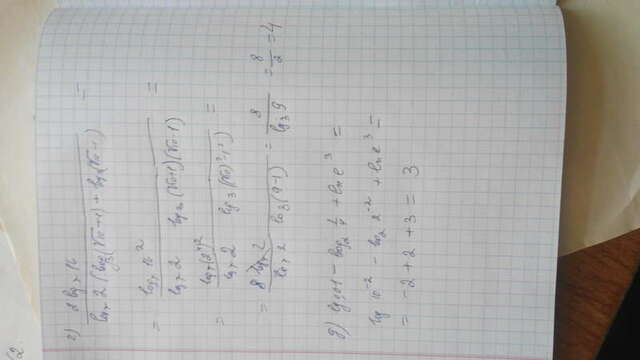 г) 2 log₇ 16 / log₇ 2 (log₃(√10 +1) + log₃(√10 -1)) =
= log₇ 16² / log₇ 2 log₃ (√10+1)(√10-1) =
= log₇(2⁴)² / log₇ 2 log₃ (√10)² - 1² =
= 8 log₇ 2 / log₇ 2 log₃(9-1) = 8 / log₃ 9 = 8 / 2 = 4
д) lg 0,01 - log₂ ¼ + ln e³ =
lg 10⁻² - log₂ 2⁻² + ln e³ =
= -2 + 2 + 3 = 3